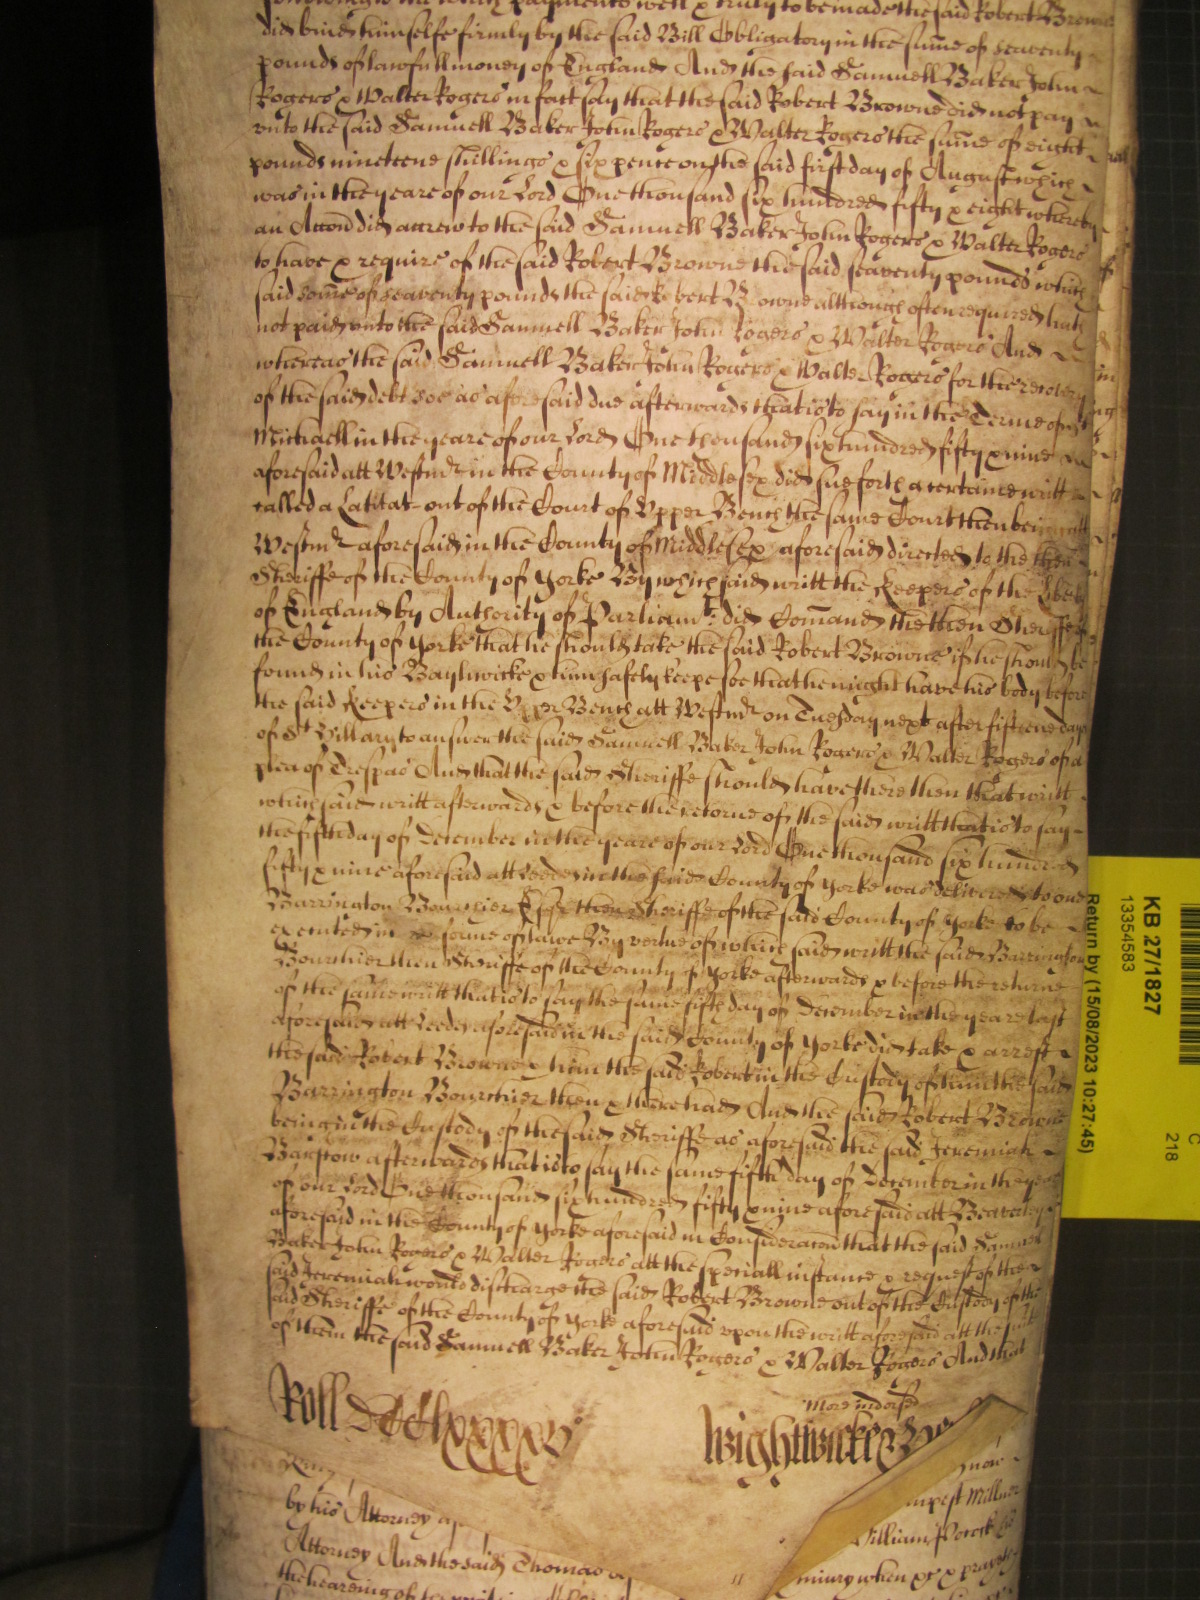 the said Robert Browne
did binde himselfe firmly by the said Bill Obligatory in the sume of seaventy
pounds of lawfull money of England And the said Samuell Baker John
Rogers & Walter Rogers in fact say that the said Robert Browne did not pay
vnto the said Samuell Baker John Rogers & Walter Rogers the sume of eight
pounds nineteene shillings & six pence on the said first day of August which
was in the yeare of our Lord One thousand six hundred fifty & eight whereby
an Accon did accrew to the said Samuell Baker John Rogers & Walter Rogers
to have & require of the said Robert Browne the said seaventy pounds which
said some of seaventy pounds the said Robert Browne although often required hath
not paid vnto the said Samuell Baker John Rogers & Walter Rogers And
whereas the said Samuell Baker John Rogers & Walter Rogers for the recovery
of the said debt soe as aforesaid due afterwards that is to say in the Terme of St
Michaell in the yeare of our Lord One thousand six hundred fifty & nine
aforesaid att Westmr in the County of Middlesex did sue forth a certaine writt
called a Latitat out of the Court of Vpper Bench the same Court then being att
Westmr aforesaid in the County of Middlesex aforesaid directed to the then
Sheriffe of the County of Yorke By which said writt the Keepers of the Liberty
of England by Authority of Parliamt: did Comand the then Sheriffe of
the County of Yorke that he should take the said Robert Browne if he should be
found in his Bayliwicke & him safely keepe soe that he might have his body before
the said Keepers in the Vpper Bench att Westmr on Tuesday next after fifteene dayes
of St Hillary to answer the said Samuell Baker John Rogers & Walter Rogers of a
plea of Trespas And that the said Sheriffe should have there then that writt
which said writt afterwards & before the retorne of the said writt that is to say
the fifth day of December in the yeare of our Lord One thousand six hundred
fifty & nine aforesaid att Leedes in the said County of Yorke was delivered to one
Barrington Bourchier Esqr then Sheriffe of the said County of Yorke to be
executed in forme of lawe By vertue of which said writt the said Barrington
Bourchier then Sheriffe of the County of Yorke afterwards & before the returne
of the same writt that is to say the same fifth day of December in the yeare last
aforesaid att Leedes aforesaid in the said County of Yorke did take & arrest
the said Robert Browne & him the said Robert in the Custody of him the said
Barrington Bourchier then & there had And the said Robert Browne
being in the Custody of the said Sheriffe as aforesaid the said Jeremiah
Bairstow afterwards that is to say the same fifth day of December in the yeare
of our Lord One thousand six hundred fifty & nine aforesaid att Beaverley
aforesaid in the County of Yorke aforesaid in Consideracon that the said Samuell
Baker John Rogers & Walter Rogers att the speciall instance & request of the
said Jeremiah would discharge the said Robert Browne out of the Custody of the
said Sheriffe of the County of Yorke aforesaid vpon the writt aforesaid att the suite
of them the said Samuell Baker John Rogers & Walter Rogers And that
More indorsd
Roll DCClxxxxv
Wightwicke
now
by his Attorney
mpest Millner
Attorney And the said Thomas
William
the hearing of
iniury when &c & prayeth
KB 27/1827
13354583
Return by (15/08/2023 10:27:45)
C
218